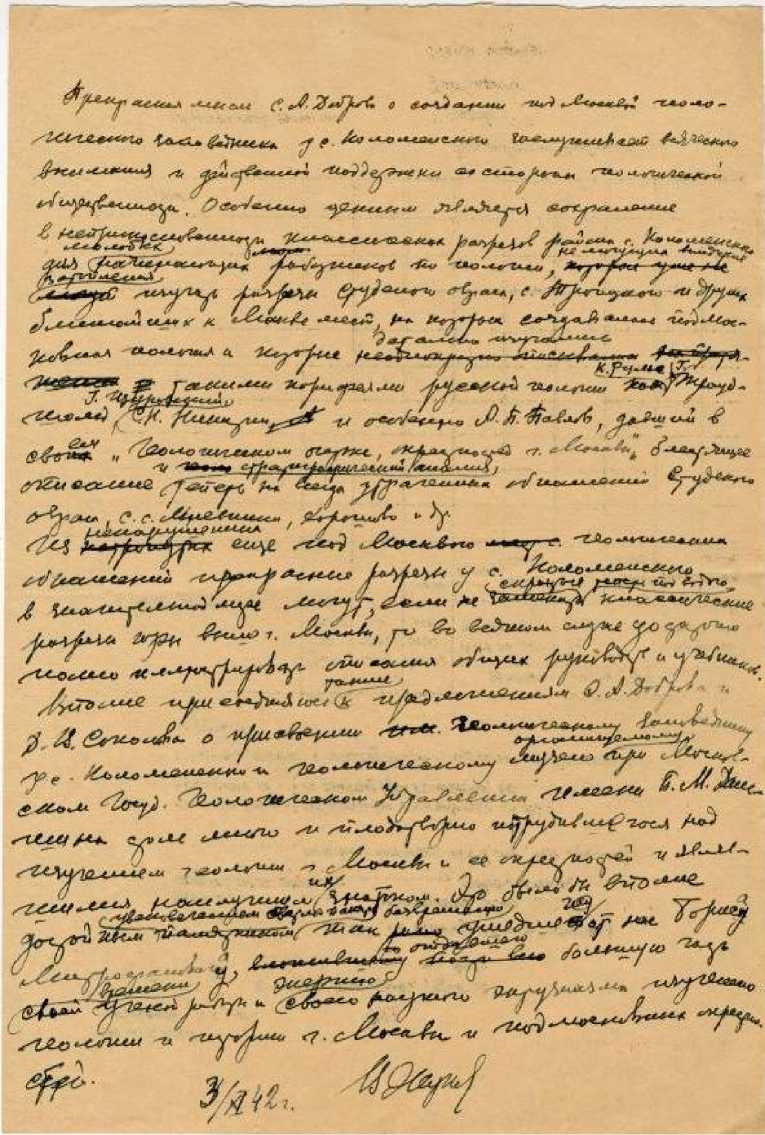 Прекрасная мысль С. А. Доброва о создании под Москвой геоло-
гического заповедника у с. Коломенского заслуживает всяческого
внимания и действенной поддержки со стороны геологической
общественности. Особенно ценным является сохранение
в неприкосновенности классических разрезов района с. Коломенского
для молодых работников по геологии, не могущих
изучать разрезы Студеного оврага, с. Троицкого и других
ближайших к Москве мест, на которых создавалась подмос-
ковная геология и которые детально изучались
такими корифеями русской геологии как К. Рулье, Г. Траут-
шольд, С. Н. Никитин, и особенно А. П. Павлов, давший в
своем „Геологическом очерке окрестностей г. Москвы“ блестящее
описание и стратиграфический анализ теперь на всегда утраченных обнажений Студеного
оврага, с. с. Мневники, Хорошово и др.
Из ненарушенных еще под Москвою геологических
обнажений прекрасные разрезы у с. Коломенского
в значительной мере могут, если не классические
разрезы юры выше г. Москвы, то во всяком случае достаточно
полно иллюстрировать описания общих руководств и учебников.
Вполне присоединяюсь также к предложениям С. А. Доброва и
Д. В. Соколова о присвоении Геологическому заповеднику
у с. Коломенского и геологическому музею при Москов-
ском Госуд. Геологическом Управлении имени Б. М. Дань-
шина столь много и плодотворно потрудившегося над
изучением геологии г. Москвы и ее окрестностей и являв-
шимся наилучшим их знатоком. Это было бы вполне
достойным памятником так ушедшего от нас Бориса
Митрофановича, большую часть
своей времени и своего энергию научного изучению
геологии и истории г. Москвы и подмосковных окрестно-
стей.
3/XI 42 г.